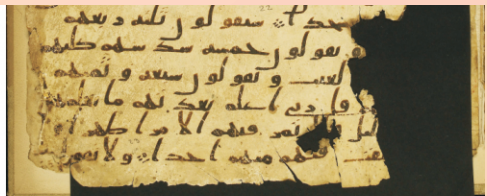 احدا سيقولون ثلثة ربعهم
ويقولون خمسة سدسهم كلبهم
لغيب ويقولون سبعة وثمنهم
قل ربي اعلم بعدتهم ما يعلمهم
تمر فيهم الا مرا ظهرا
فيهم منهم احدا ولا تقو